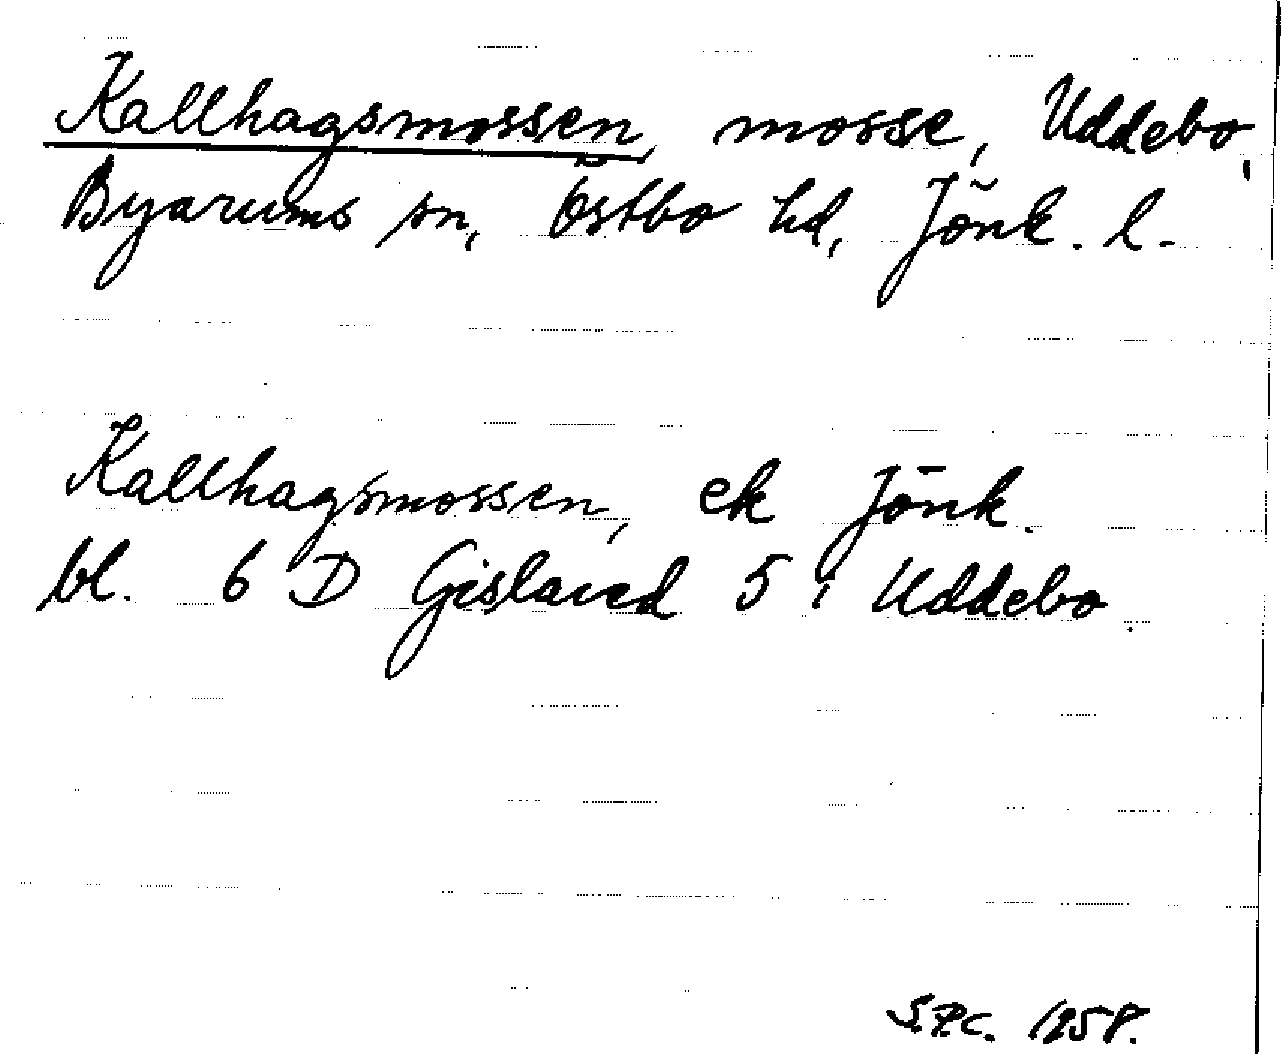 Kallhagsmossen, mosse, Uddebo,
Byarums sn, Östbo hd, Jönk. l.
Kallhagsmossen, ek Jönk.
bl. 6 D Gislaved 5 i Uddebo.
S.P.C. 1958.